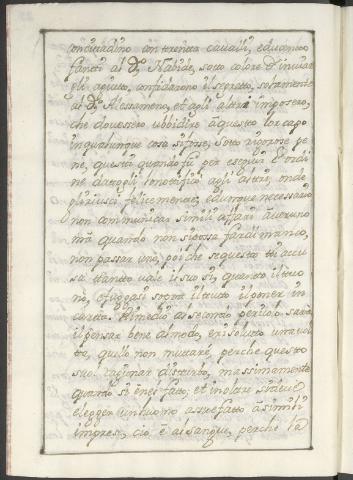 concittadino con trenta cavalli, et quanto
fanti al d.º Nabide, sotto colore d'inviar
gli aiuto, confidarono il segreto, solamente
al d.º Alessameno, et agli altri imposero,
che dovessero ubbidire à questo lor capo
in qualunque cosa si fosse, sotto rigorose pe
ne, questa quando fù per eseguir l'ordi
ne datogli lo notificò agli altri, onde
gli riuscì felicemente, è dunque necessario
non communicar simili affari à veruno
mà quando non si possa far di manco,
non passar uno, poi che se questo ti accu
sa tanto vale il suo sì, quanto il tuo
nò, et fuggasi sopra il tutto il poner in
carta. Rimedio al secondo pericolo sarà
il pensar bene al modo, et risoluto una vol
ta, quello non mutare, perche questo
suol cagionar disturbo, massimamente
quando si è nel fatto; et inoltre si deve
elegger un huomo assuefatto à simili
imprese, ciò è al sangue, perche la